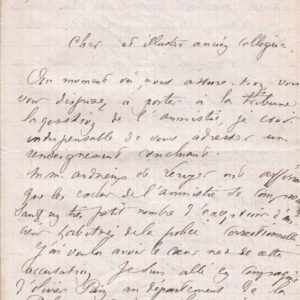 Cher et illustre ancien collègue
Au moment où nous assure-t-on, vous
vous disposez à porter à la tribune
la question de l'amnistie, je crois
indispensable de vous adresser un
renseignement concluant.
M.M. andrieux de ont affirmé
que les exclus de l'amnistie se
sauf un très petit nombre d'exceptions
de la police correctionnelle
J'ai voulu avoir le cœur net de cette
accusation. Je suis allé en compagnie
d'olivier Pain au département de la